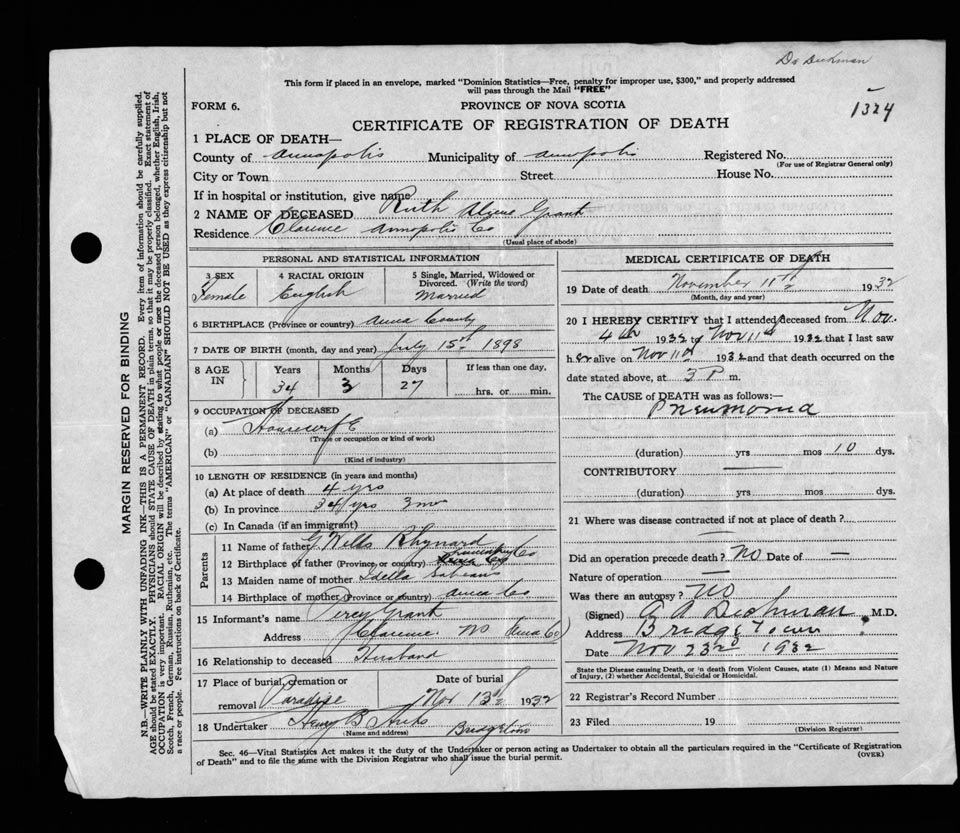 Dr Deekman
This form if placed in an envelope, marked "Dominion Statistics—Free, penalty for improper use, $300," and properly addressed
will pass through the Mail "FREE"
1324
FORM 6.
PROVINCE OF NOVA SCOTIA
CERTIFICATE OF REGISTRATION OF DEATH
1 PLACE OF DEATH—
County of Annapolis Municipality of Annapolis Registered No.
(For use of Registrar General only)
City or Town Street House No.
If in hospital or institution, give name
2 NAME OF DECEASED Ruth Grant
Residence Clarence Annapolis Co
(Usual place of abode)
PERSONAL AND STATISTICAL INFORMATION
3 SEX 4 RACIAL ORIGIN 5 Single, Married, Widowed or Divorced. (Write the word)
Female English Married
6 BIRTHPLACE (Province or country) Anna County
7 DATE OF BIRTH (month, day and year) July 15th 1898
8 AGE IN Years Months Days If less than one day,
34 3 27 hrs. or min.
9 OCCUPATION OF DECEASED
(a) Housewife
(Trade or occupation or kind of work)
(b)
(Kind of industry)
10 LENGTH OF RESIDENCE (in years and months)
(a) At place of death 4 yrs
(b) In province 34 yrs 3 mo
(c) In Canada (if an immigrant)
Parents
11 Name of father G Wells Rhynard
12 Birthplace of father (Province or country) Co
13 Maiden name of mother Idella Sabeans
14 Birthplace of mother (Province or country) Anna Co
15 Informant's name Percy Grant
Address Clarence NS Anna Co
16 Relationship to deceased Husband
17 Place of burial, cremation or removal Paradise Date of burial Nov 13th 1932
18 Undertaker Henry B Hicks Bridgetown
(Name and address)
MEDICAL CERTIFICATE OF DEATH
19 Date of death November 11th 1932
(Month, day and year)
20 I HEREBY CERTIFY that I attended deceased from Nov.
4th 1932 to Nov 11th 1932 that I last saw
h er alive on Nov 11th 1932 and that death occurred on the
date stated above, at 3 P m.
The CAUSE of DEATH was as follows:—
Pneumonia
(duration) yrs mos 10 dys.
CONTRIBUTORY —
(duration) yrs mos dys.
21 Where was disease contracted if not at place of death?
—
Did an operation precede death? No Date of —
Nature of operation —
Was there an autopsy? No
(Signed) A A Dechman M.D.
Address Bridgetown
Date Nov 23rd 1932
State the Disease causing Death, or in death from Violent Causes, state (1) Means and Nature
of Injury, (2) whether Accidental, Suicidal or Homicidal.
22 Registrar's Record Number
23 Filed 19
(Division Registrar)
Sec. 46—Vital Statistics Act makes it the duty of the Undertaker or person acting as Undertaker to obtain all the particulars required in the "Certificate of Registration
of Death" and to file the same with the Division Registrar who shall issue the burial permit.
(OVER)
MARGIN RESERVED FOR BINDING
N.B.—WRITE PLAINLY WITH UNFADING INK—THIS IS A PERMANENT RECORD. Every item of information should be carefully supplied.
AGE should be stated EXACTLY. PHYSICIANS should STATE CAUSE OF DEATH in plain terms, so that it may be properly classified. Exact statement of
OCCUPATION is very important. RACIAL ORIGIN will be described by stating to what people or race the deceased person belonged, whether English, Irish,
Scotch, French, German, Russian, Ruthenian, etc. The terms "AMERICAN" or "CANADIAN" SHOULD NOT BE USED as they express citizenship but not
a race or people. Fee instructions on back of Certificate.